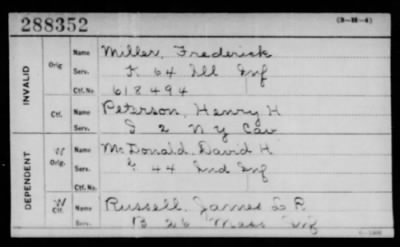 288352
(3-III-4)
INVALID
Orig
Name Miller, Frederick
Serv. F 64 Ill Inf
Ctf. No. 618494
Ctf.
Name Peterson, Henry H
Serv. 2 N Y Cav
DEPENDENT
W Orig.
Name McDonald David H
Serv. 44 Ind Inf
Ctf. No.
W Ctf.
Name Russell, James L R
Serv. B 26 Mass Inf